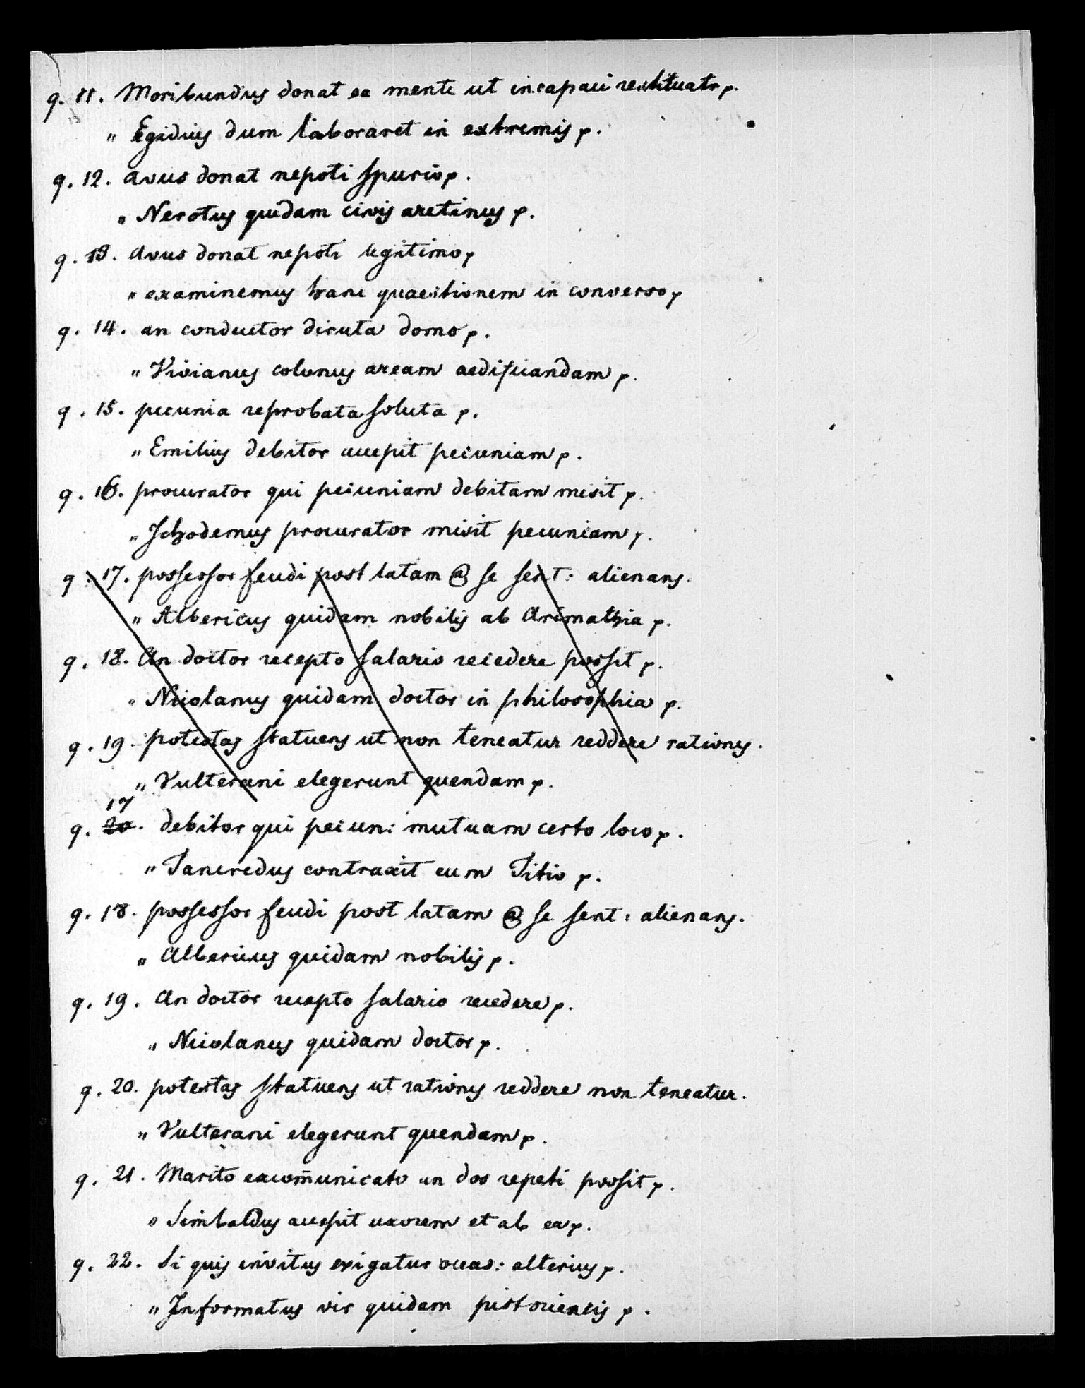 q. 11. Moribundus donat ea mente ut incapaci restituatr p.
" Egidius dum laboraret in extremis p.
q. 12. avus donat nepoti spurio p.
" Nerotus quidam civis aretinus p.
q. 13. avus donat nepoti legitimo p
" examinemus hanc quaestionem in converso p
q. 14. an conductor diruta domo p.
" Vivianus colonus aream aedificandam p.
q. 15. pecunia reprobata soluta p.
" Emilius debitor accepit pecuniam p.
q. 16. procurator qui pecuniam debitam misit p.
" Ichodemus procurator misit pecuniam p.
q. 17. possessor feudi post latam @ se sent: alienans.
" Albericus quidam nobilis ab Arimathia p.
q. 18. An doctor recepto salario recedere possit p.
" Nicolanus quidam doctor in philosophia p.
q. 19. potestas statuens ut non teneatur reddere rationes.
" Vulterani elegerunt quendam p.
17
q. 20. debitor qui pecun: mutuam certo loco p.
" Tancredus contraxit cum Titio p.
q. 18. possessor feudi post latam @ se sent: alienans.
" Albericus quidam nobilis p.
q. 19. An doctor recepto salario recedere p.
" Nicolanus quidam doctor p.
q. 20. potestas statuens ut rationes reddere non teneatur.
" Vulterani elegerunt quendam p.
q. 21. Marito excom̄unicato an dos repeti possit p.
" Simbaldus accepit uxorem et ab ea p.
q. 22. Si quis invitus exigatur occas: alterius p.
" Informatus vir quidam pistoriensis p.